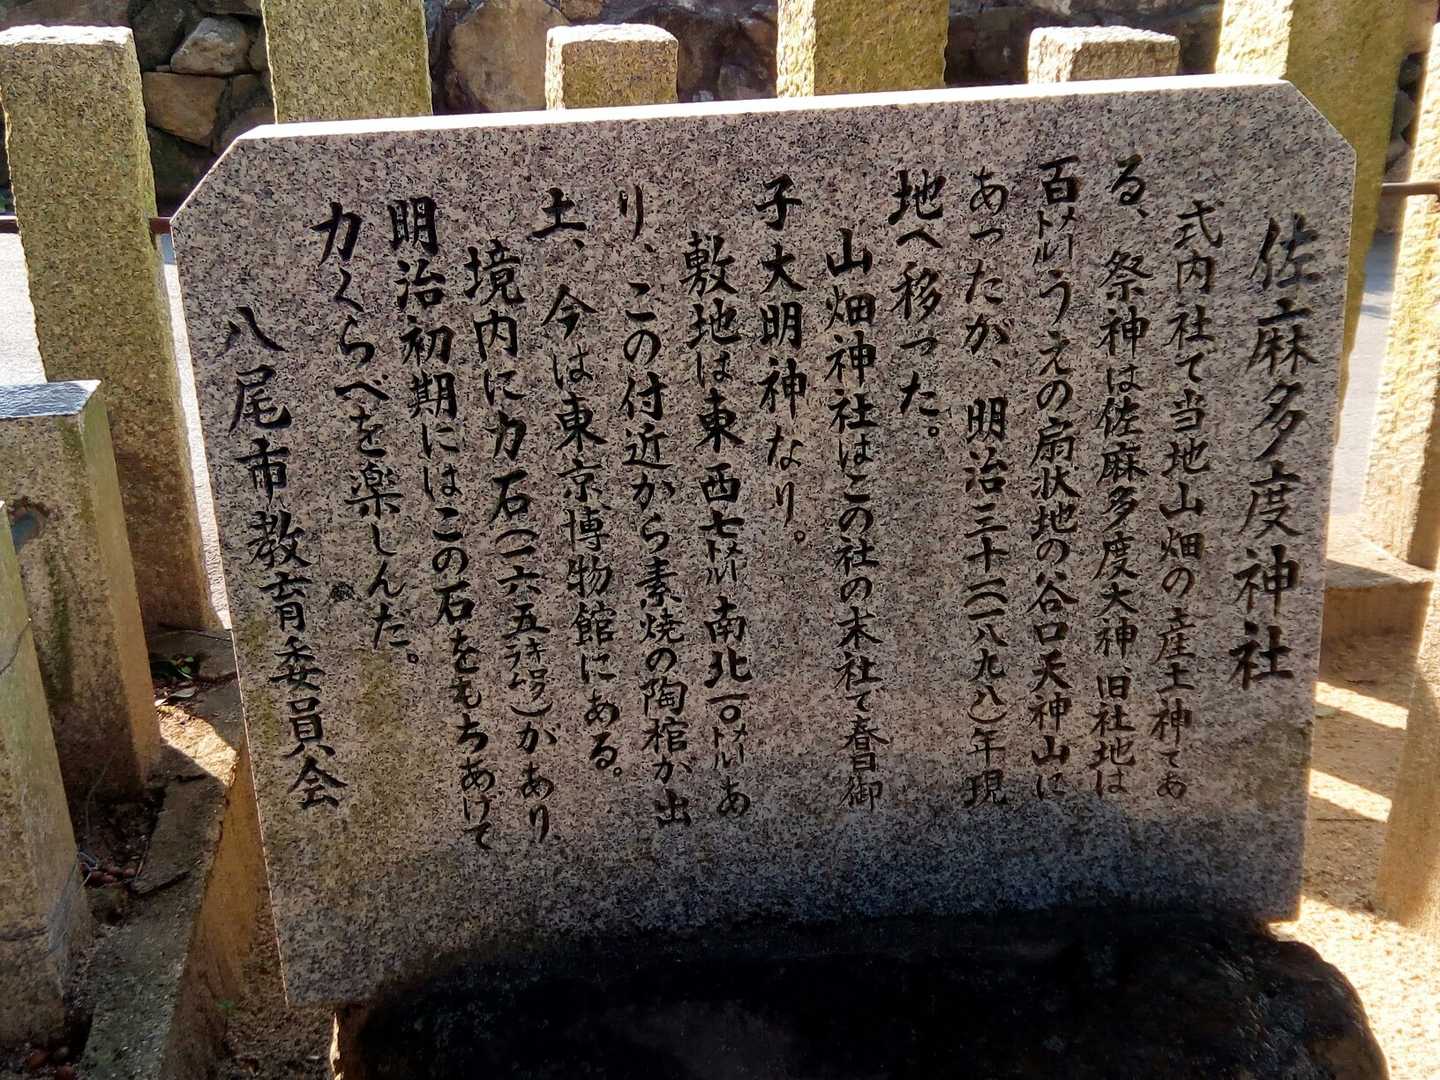 佐麻多度神社
式内社で当地山畑の産土神であ
る、祭神は佐麻多度大神、旧社地は
百㍍うえの扇状地の谷口天神山に
あったが、明治三十一(一八九八)年現
地へ移った。
山畑神社はこの社の末社で春日御
子大明神なり。
敷地は東西七㍍南北一〇㍍あ
り、この付近から素焼の陶棺が出
土、今は東京博物館にある。
境内に力石(一六五㌔㌘)があり
明治初期にはこの石をもちあげて
力くらべを楽しんだ。
八尾市教育委員会